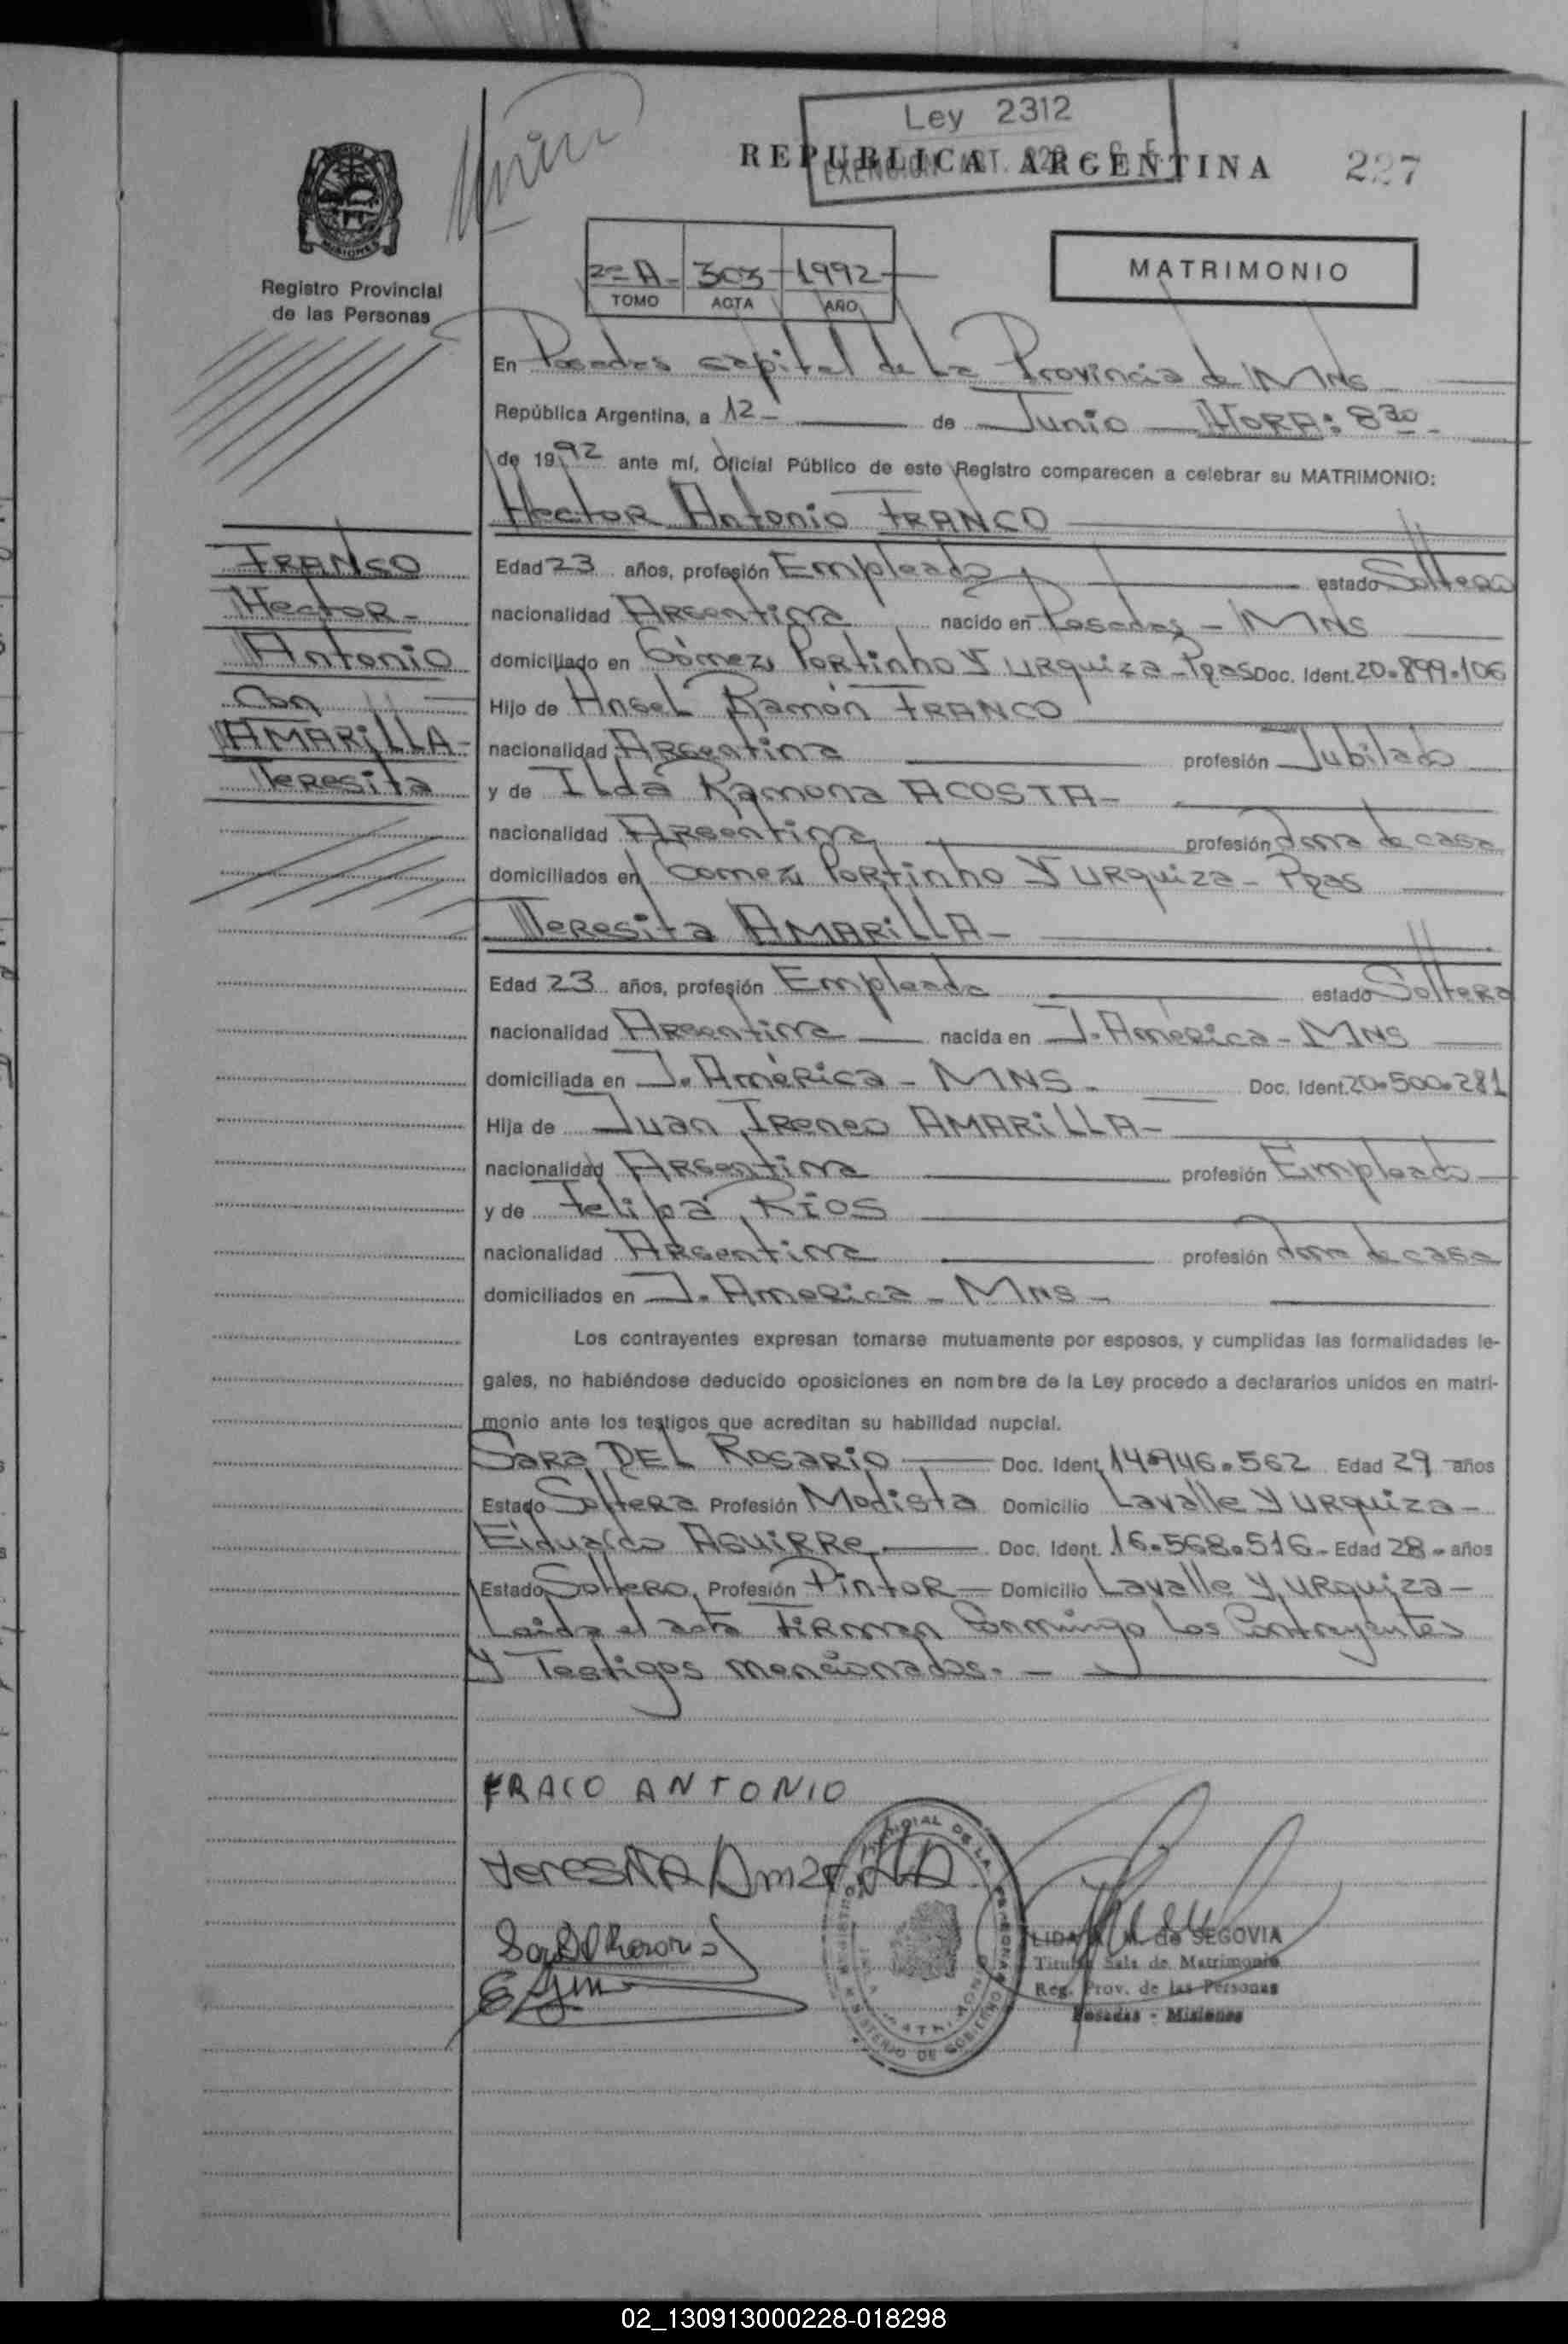 Ley 2312
REPUBLICA ARGENTINA
227
MISIONES
Registro Provincial
de las Personas
2º A- 303 1992
TOMO ACTA AÑO
MATRIMONIO
En Posadas capital de La Provincia de MNS
República Argentina, a 12- de Junio HORA: 8 30
de 1992 ante mí, Oficial Público de este Registro comparecen a celebrar su MATRIMONIO:
Hector Antonio FRANCO
FRANCO
Hector-
Antonio
Con
AMARILLA-
Teresita
Edad 23 años, profesión Empleado estado Soltero
nacionalidad Argentina nacido en Posadas - MNS
domiciliado en Gómez Portinho Y URquiza - Pdas Doc. Ident. 20.899.106
Hijo de Angel Ramón FRANCO
nacionalidad Argentina profesión Jubilado
y de Ilda Ramona ACOSTA-
nacionalidad Argentina profesión Ama de casa
domiciliados en Gomez Portinho Y URquiza - Pdas
Teresita AMARILLA-
Edad 23 años, profesión Empleada estado Soltera
nacionalidad Argentina nacida en J. América - MNS
domiciliada en J. América - MNS. Doc. Ident. 20.500.281
Hija de Juan Ireneo AMARILLA-
nacionalidad Argentina profesión Empleado
y de Felipa RIOS
nacionalidad Argentina profesión Ama de casa
domiciliados en J. America - MNS -
Los contrayentes expresan tomarse mutuamente por esposos, y cumplidas las formalidades le-
gales, no habiéndose deducido oposiciones en nombre de la Ley procedo a declararlos unidos en matri-
monio ante los testigos que acreditan su habilidad nupcial.
Sara DEL Rosario Doc. Ident. 14.946.562 Edad 29 años
Estado Soltera Profesión Modista Domicilio Lavalle Y URquiza -
Eduardo AGUIRRE Doc. Ident. 16.568.516 - Edad 28 - años
Estado Soltero Profesión Pintor Domicilio Lavalle Y URquiza -
Leida el acta Firman Conmigo Los Contrayentes
Y Testigos mencionados. -
FRACO ANTONIO
teresita
LIDA M. de SEGOVIA
Titular Sala de Matrimonio
Reg. Prov. de las Personas
Posadas - Misiones
02_130913000228-018298